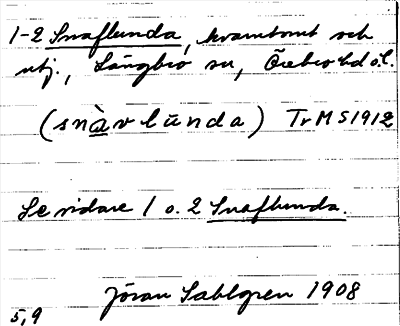 1-2 Snaflunda, kvarntomt och
utj., Långbro sn, Örebro hd o.l.
(snàvlūnda) TrMS1912
Se vidare 1 o. 2 Snaflunda.
Jöran Sahlgren 1908
5,9